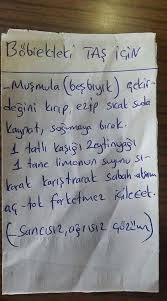 Böbrekteki TAŞ İÇİN
- Muşmula (beşbıyık) çekir-
değini kırıp, ezip sıcak suda
kaynat, soğumaya bırak.
1 tatlı kaşığı zeytinyağı
1 tane limonun suyunu sı-
karak karıştırarak sabah akşam
aç-tok farketmez içilecek.
(Sancısız, ağrısız çözüm)